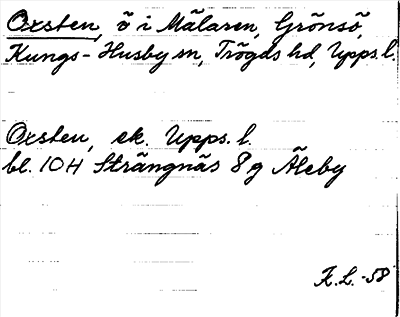 Oxsten, ö i Mälaren, Grönsö,
Kungs-Husby sn, Trögds hd, Upps. l.
Oxsten, ek. Upps. l.
bl. 10 H Strängnäs 8 g Åleby
F.L. -58